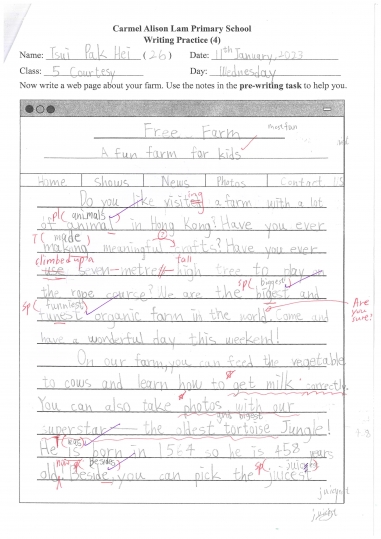 Carmel Alison Lam Primary School
Writing Practice (4)
Name: Tsui Pak Hei (26) Date: 11th January, 2023
Class: 5 Courtesy Day: Wednesday
Now write a web page about your farm. Use the notes in the pre-writing task to help you.
Free Farm
A fun farm for kids
Home Shows News Photos Contact US
Do you like visiting a farm with a lot
pl( animals
of animal in Hong Kong? Have you ever
T ( made )
making meaningful crafts? Have you ever
climbed up a tall
use seven-metre high tree to play on
sp( biggest
the rope cource? We are the bigest and
sp( funniest
funest organic farm in the world. Come and
Are you sure?
have a wonderful day this weekend!
On our farm, you can feed the vegetable
to cows and learn how to get milk correctly.
You can also take photos with our
and biggest
superstar — the oldest tortoise Jungle!
T( was )
He is born in 1564 so he is 458 years
sp( besides sp( juiciest
old. Beside, you can pick the juicest